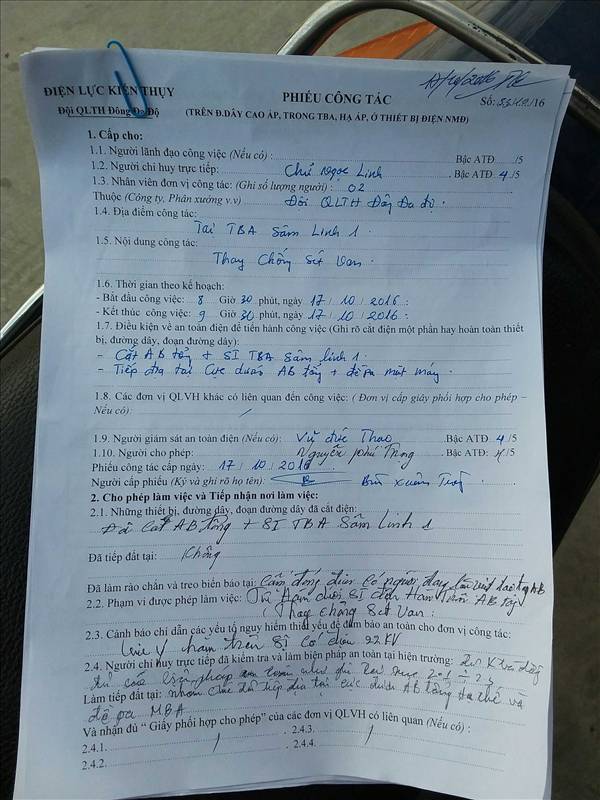 ĐIỆN LỰC KIẾN THỤY
Đội QLTH Đông Đa Độ
17/10/2016
PHIẾU CÔNG TÁC
Số: /16
(TRÊN Đ.DÂY CAO ÁP, TRONG TBA, HẠ ÁP, Ở THIẾT BỊ ĐIỆN NMĐ)
1. Cấp cho:
1.1. Người lãnh đạo công việc (Nếu có) : Bậc ATĐ /5
1.2. Người chỉ huy trực tiếp: Chu Ngọc Linh . Bậc ATĐ 4 /5
1.3. Nhân viên đơn vị công tác: (Ghi số lượng người) : 02
Thuộc (Công ty, Phân xưởng v.v) Đội QLTH Đông Đa độ.
1.4. Địa điểm công tác:
Tại TBA Sâm Linh 1.
1.5. Nội dung công tác:
Thay Chống Sét Van.
1.6. Thời gian theo kế hoạch:
- Bắt đầu công việc: 8 Giờ 30 phút, ngày 17 / 10 / 2016.
- Kết thúc công việc: 9 Giờ 30 phút, ngày 17 / 10 / 2016.
1.7. Điều kiện về an toàn điện để tiến hành công việc (Ghi rõ cắt điện một phần hay hoàn toàn thiết
bị, đường dây, đoạn đường dây):
- Cắt AB tổng + SI TBA Sâm linh 1.
- Tiếp địa tại Cực dưới AB tổng + đè pa mát máy.
1.8. Các đơn vị QLVH khác có liên quan đến công việc: ( Đơn vị cấp giấy phối hợp cho phép –
Nếu có):
1.9. Người giám sát an toàn điện (Nếu có): Vũ đức Thao Bậc ATĐ 4 /5
1.10. Người cho phép: Nguyễn phú Trung Bậc ATĐ: /5
Phiếu công tác cấp ngày: 17 / 10 / 2016
Người cấp phiếu (Ký và ghi rõ họ tên): Bùi Xuân
2. Cho phép làm việc và Tiếp nhận nơi làm việc:
2.1. Những thiết bị, đường dây, đoạn đường dây đã cắt điện:
Đã Cắt AB tổng + SI TBA Sâm Linh 1
Đã tiếp đất tại: Không
Đã làm rào chắn và treo biển báo tại: Cấm đóng điện có người đang làm việt tại tay AB
2.2. Phạm vi được phép làm việc: Từ Hàm dưới SI đến Hàm Trên AB tổng
(Thay Chống Sét Van.
2.3. Cảnh báo chỉ dẫn các yếu tố nguy hiểm thiết yếu để đảm bảo an toàn cho đơn vị công tác:
Lưu ý hàm trên SI có điện 22KV
2.4. Người chỉ huy trực tiếp đã kiểm tra và làm biện pháp an toàn tại hiện trường:
đủ các an toàn như ghi tại mục 2.1 ÷ 2.3
Làm tiếp đất tại: tiếp địa tại cực dưới AB tổng hạ thế và
đè pa MBA
Và nhận đủ “ Giấy phối hợp cho phép” của các đơn vị QLVH có liên quan (Nếu có) :
2.4.1. . 2.4.3.
2.4.2. . 2.4.4.